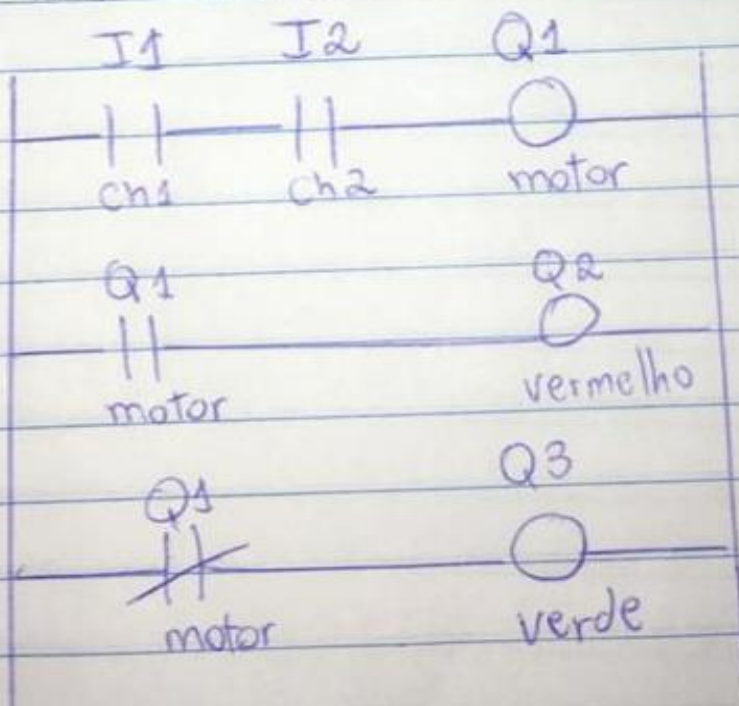 I1 I2 Q1
ch1 ch2 motor
Q1 Q2
motor vermelho
Q1 Q3
motor verde